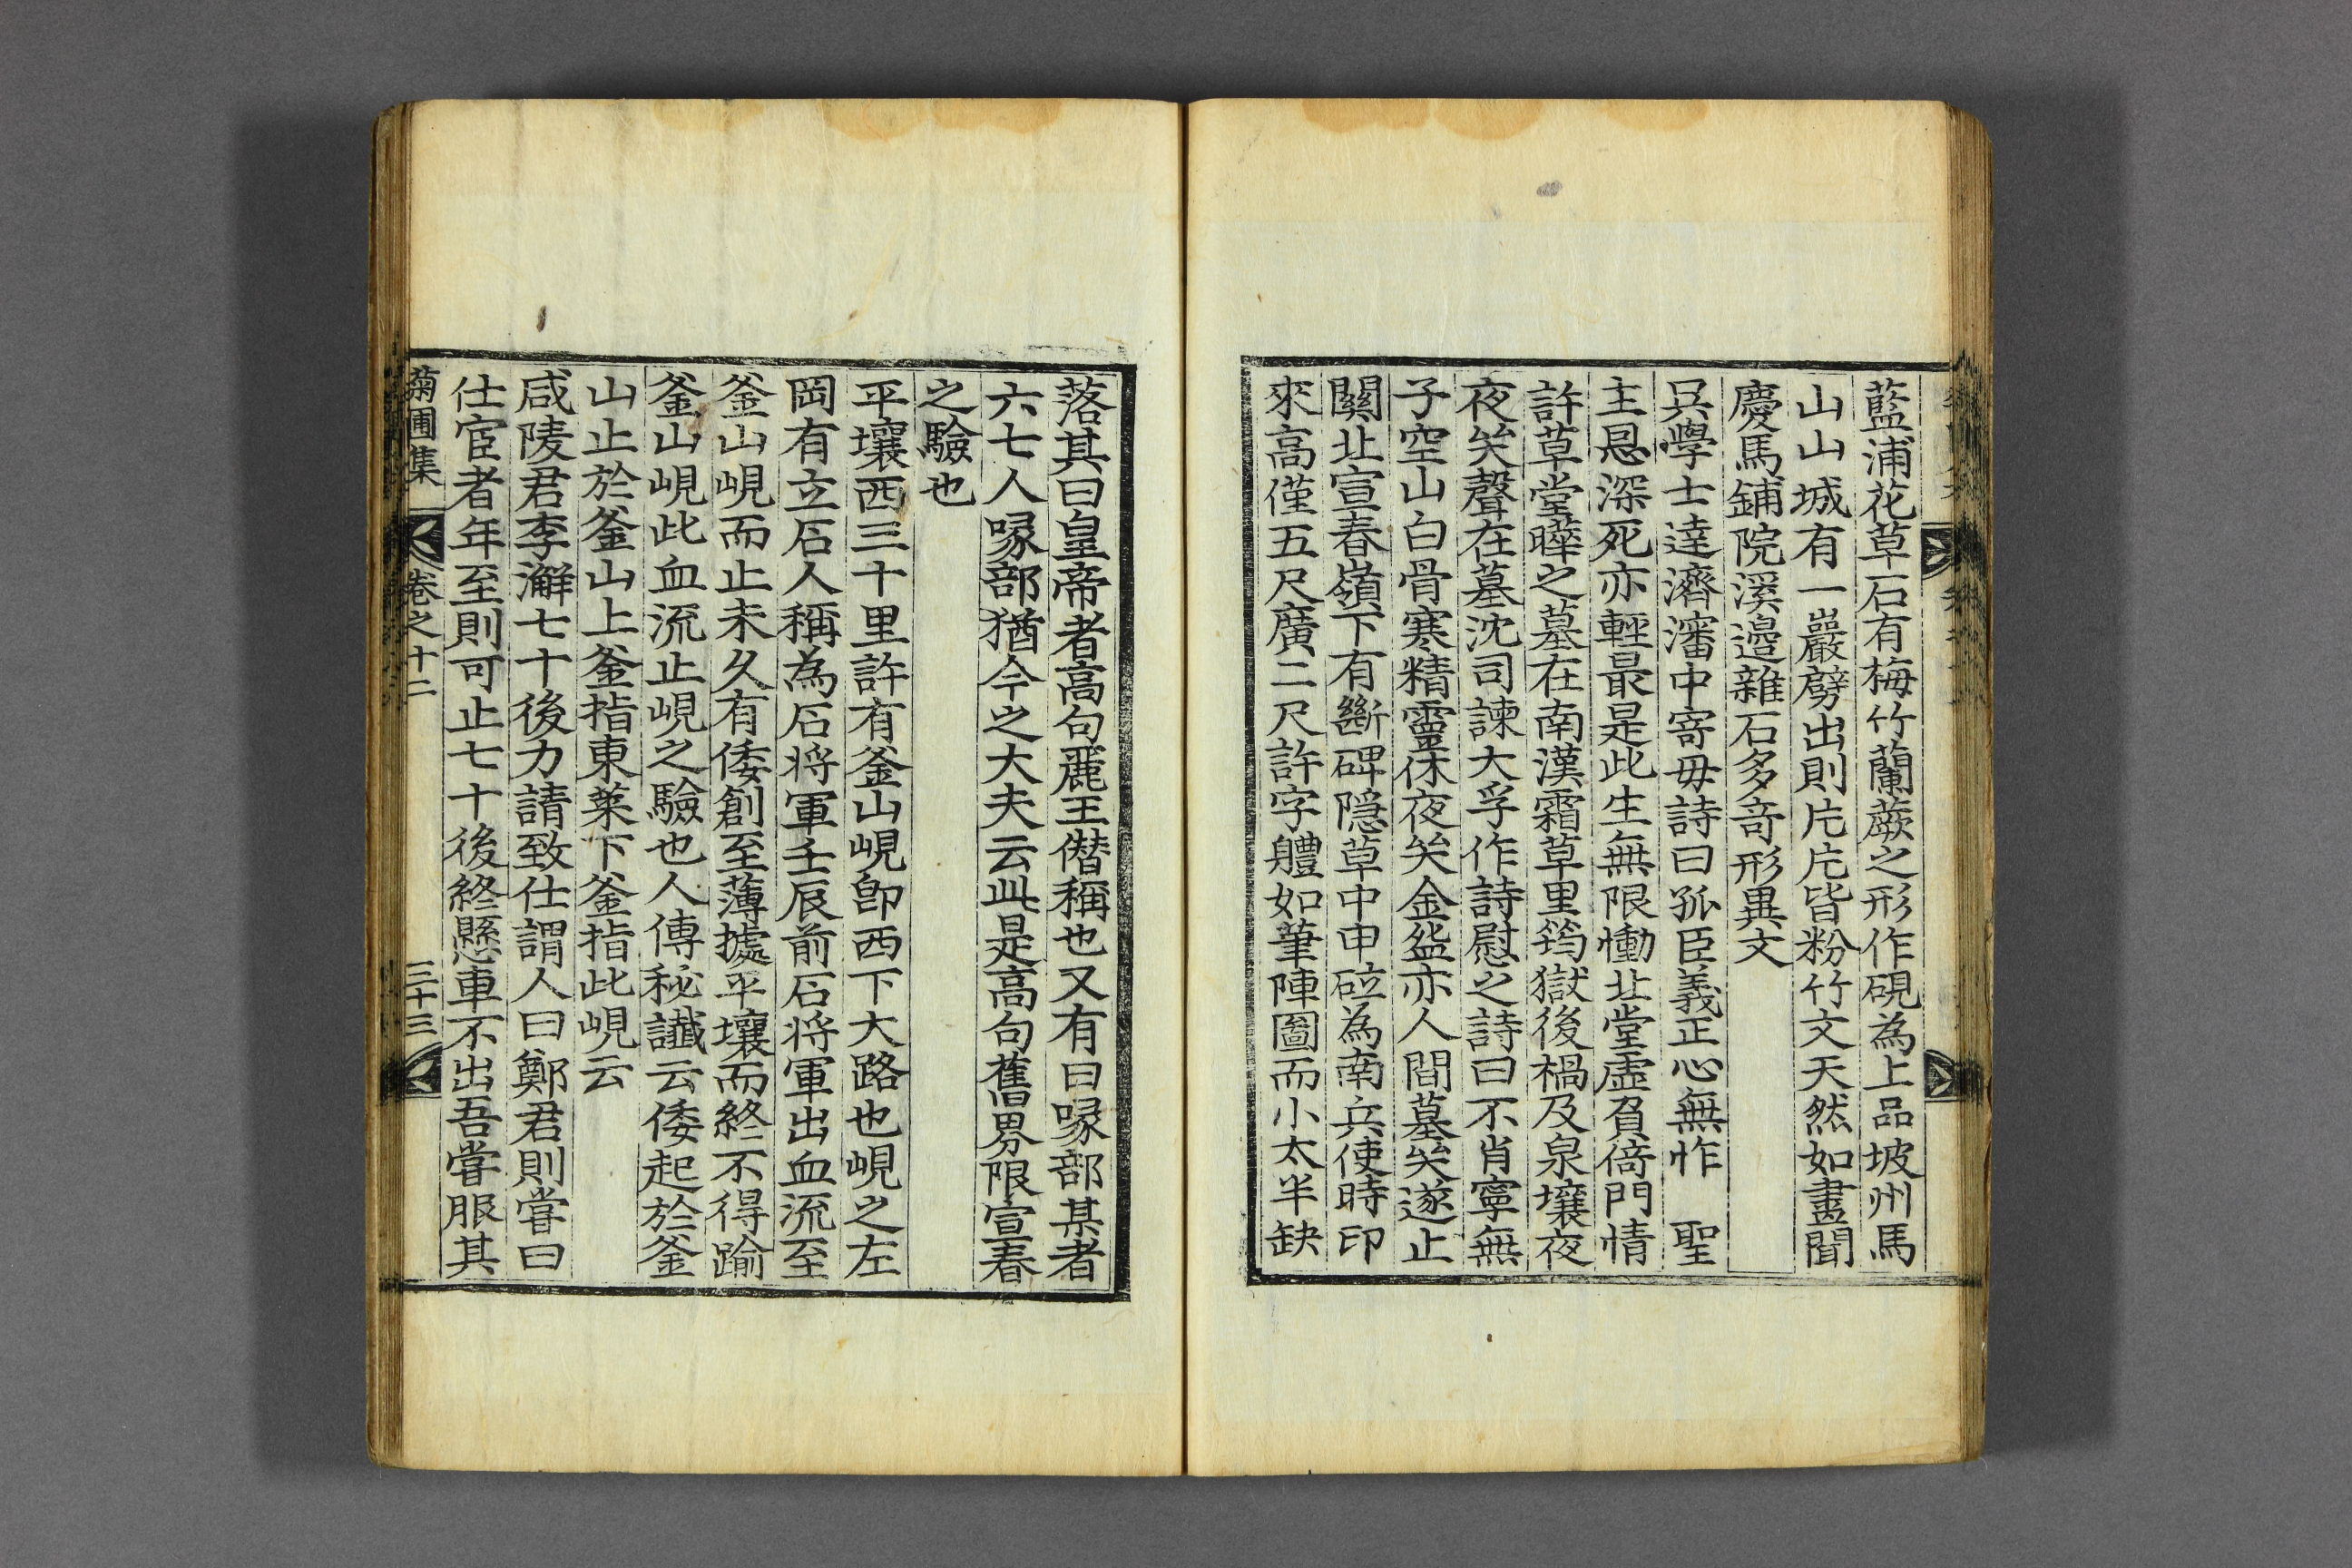 藍浦花草石有梅竹蘭蕨之形作硯為上品坡州馬
山山城有一巖劈出則片片皆粉竹文天然如畫聞
慶馬鋪院溪邉雜石多竒形異文
吳學士達濟瀋中寄毋詩曰孤臣義正心無怍　聖
主恩深死亦輕最是此生無限慟北堂虛負倚門情
許草堂曄之墓在南漢霜草里筠獄後禍及泉壤夜
夜哭聲在墓沈司諫大孚作詩慰之詩曰不肖寧無
子空山白骨寒精靈休夜哭金盌亦人間墓哭遂止
關北宣春嶺下有斷碑隠草中申砬為南兵使時印
來高僅五尺廣二尺許字軆如筆陣圖而小太半缺
落其曰皇帝者高句麗王僣稱也又有曰㖮部某者
六七人㖮部猶今之大夫云此是高句舊界限宣春
之驗也
平壤西三十里許有釜山峴卽西下大路也峴之左
岡有立石人稱為石將軍壬辰前石將軍出血流至
釜山峴而止未久有倭創至薄據平壤而終不得踰
釜山峴此血流止峴之驗也人傳秘讖云倭起於釜
山止於釜山上釜指東萊下釜指此峴云
咸陵君李澥七十後力請致仕謂人曰鄭君則嘗曰
仕宦者年至則可止七十後終懸車不出吾嘗服其
菊圃集　卷之十二　三十三